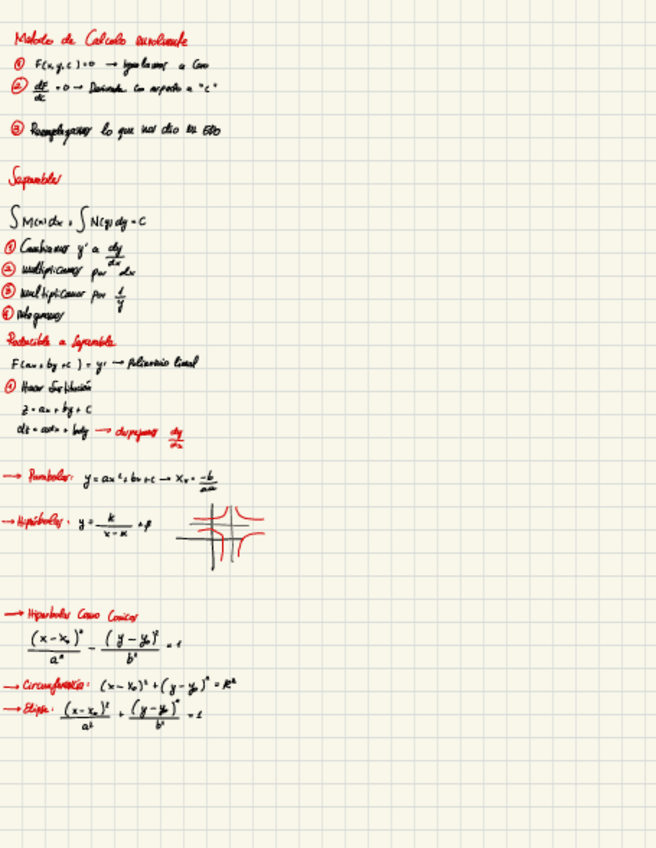 Metodo de Calculo envolvente
① F(x,y,c)=0 → Igualamos a Cero
② dF/dc = 0 → Derivada con respecto a "c"
③ Reemplazamos lo que nos dio en EDO
Separables
∫M(x)dx + ∫N(y)dy = C
① Cambiamos y' a dy/dx
② multiplicamos por dx
③ multiplicamos por 1/y
④ Integramos
Reducible a Separable
F(ax+by+c) = y' → Polinomio lineal
① Hacer Sustitución
z = ax + by + c
dz = adx + bdy → despejamos dy/dx
→ Parabolas: y = ax²+bx+c → Xv = -b/2a
→ Hipérbolas: y = k/(x-α) + β
→ Hiperbolas Como Conicas
(x-x₀)²/a² - (y-y₀)²/b² = 1
→ Circunferencia: (x-x₀)² + (y-y₀)² = R²
→ Elipse: (x-x₀)²/a² + (y-y₀)²/b² = 1